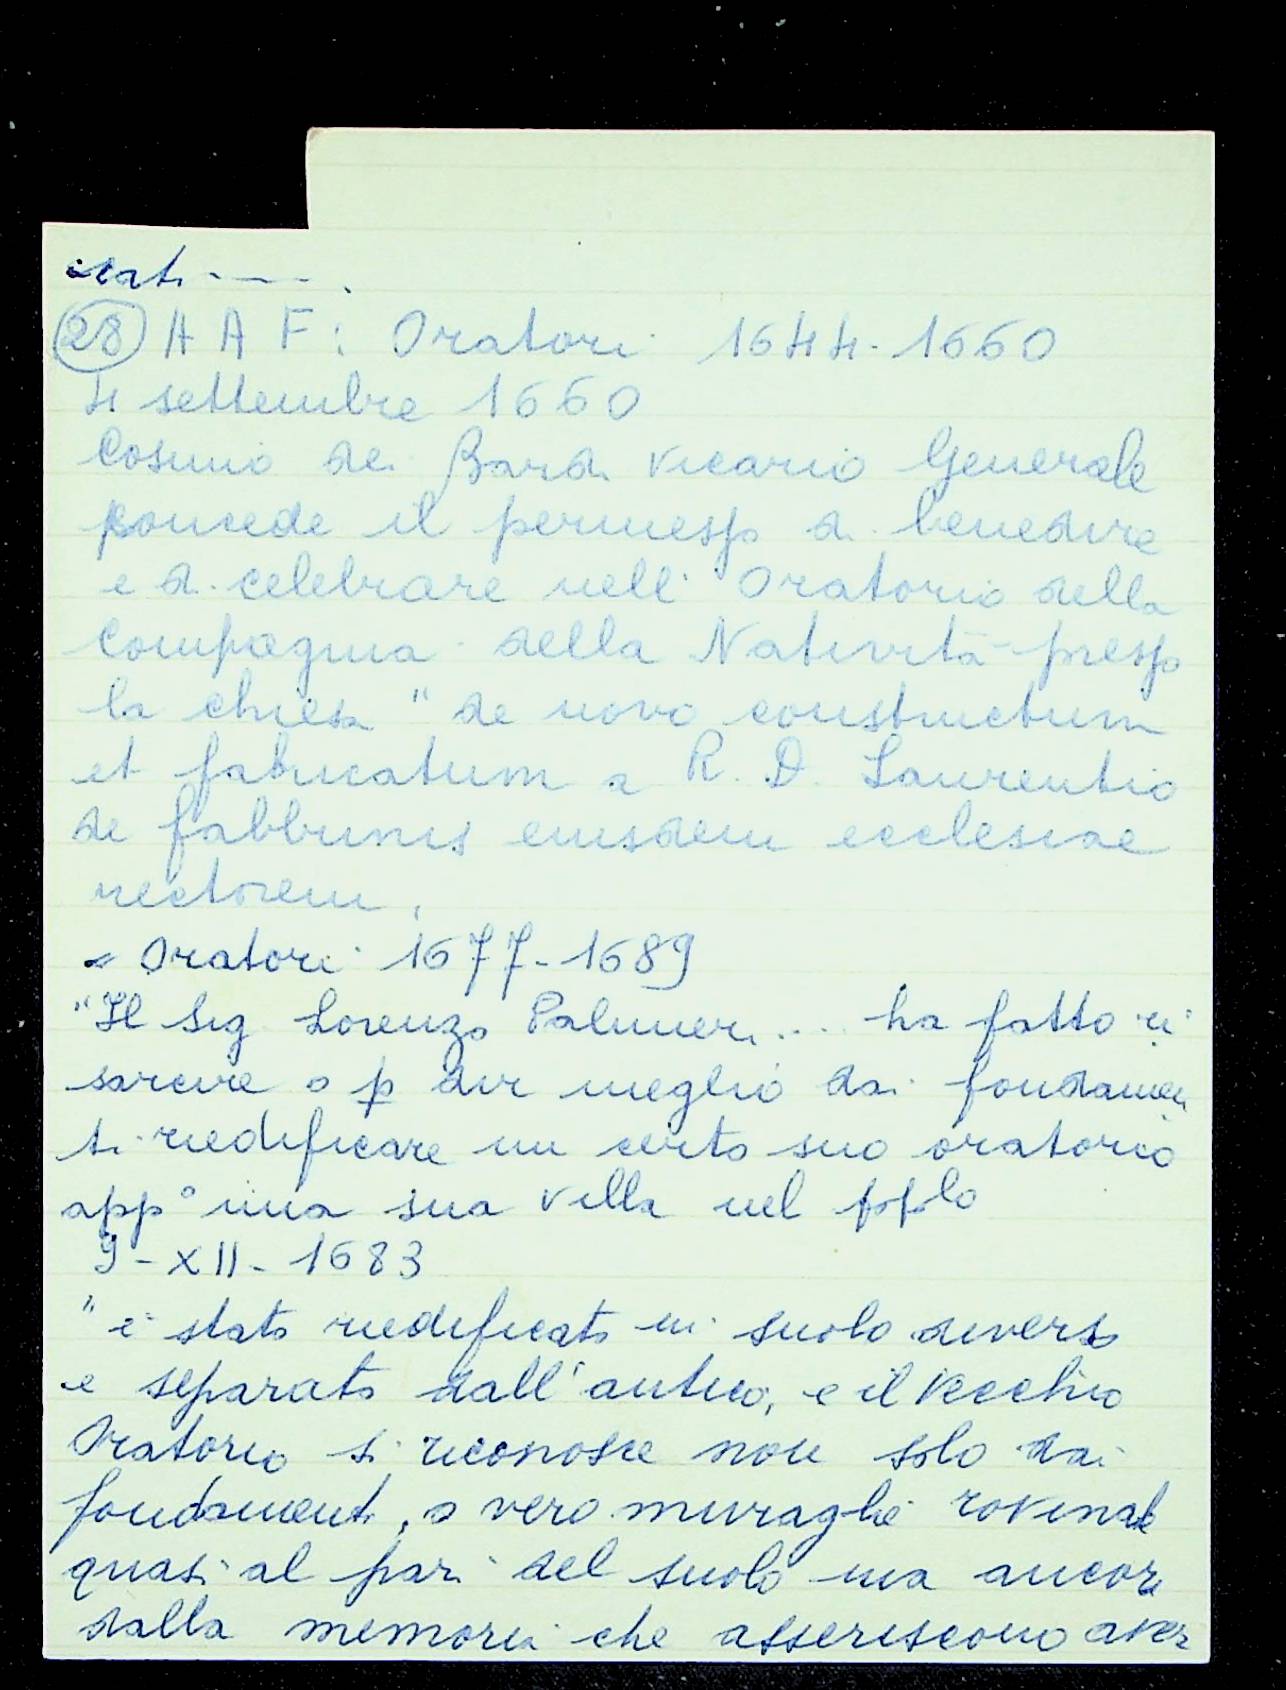 icati ----.
28 A A F: Oratori 1644-1660
4 settembre 1660
Cosimo dei Bardi Vicario Generale
concede il permesso di benedire
e di celebrare nell'Oratorio della
Compagnia della Natività presso
la chiesa "de novo constructum
et fabricatum a R. D. Laurentio
de fabbrinis eiusdem ecclesiae
rectorem.
" Oratori 1677-1689
"Il Sig Lorenzo Palmieri.... ha fatto ri
sarcire o p dir meglio dai fondamen
ti riedificare un certo suo oratorio
app° una sua villa nel popolo
9-XII-1683
" è stato riedificato in suolo diverso
e separato dall'antico, e il vecchio
Oratorio si riconosce non solo dai
fondamenti, o vero muraglie rovinate
quasi al pari del suolo ma ancora
dalla memoria che asseriscono aver